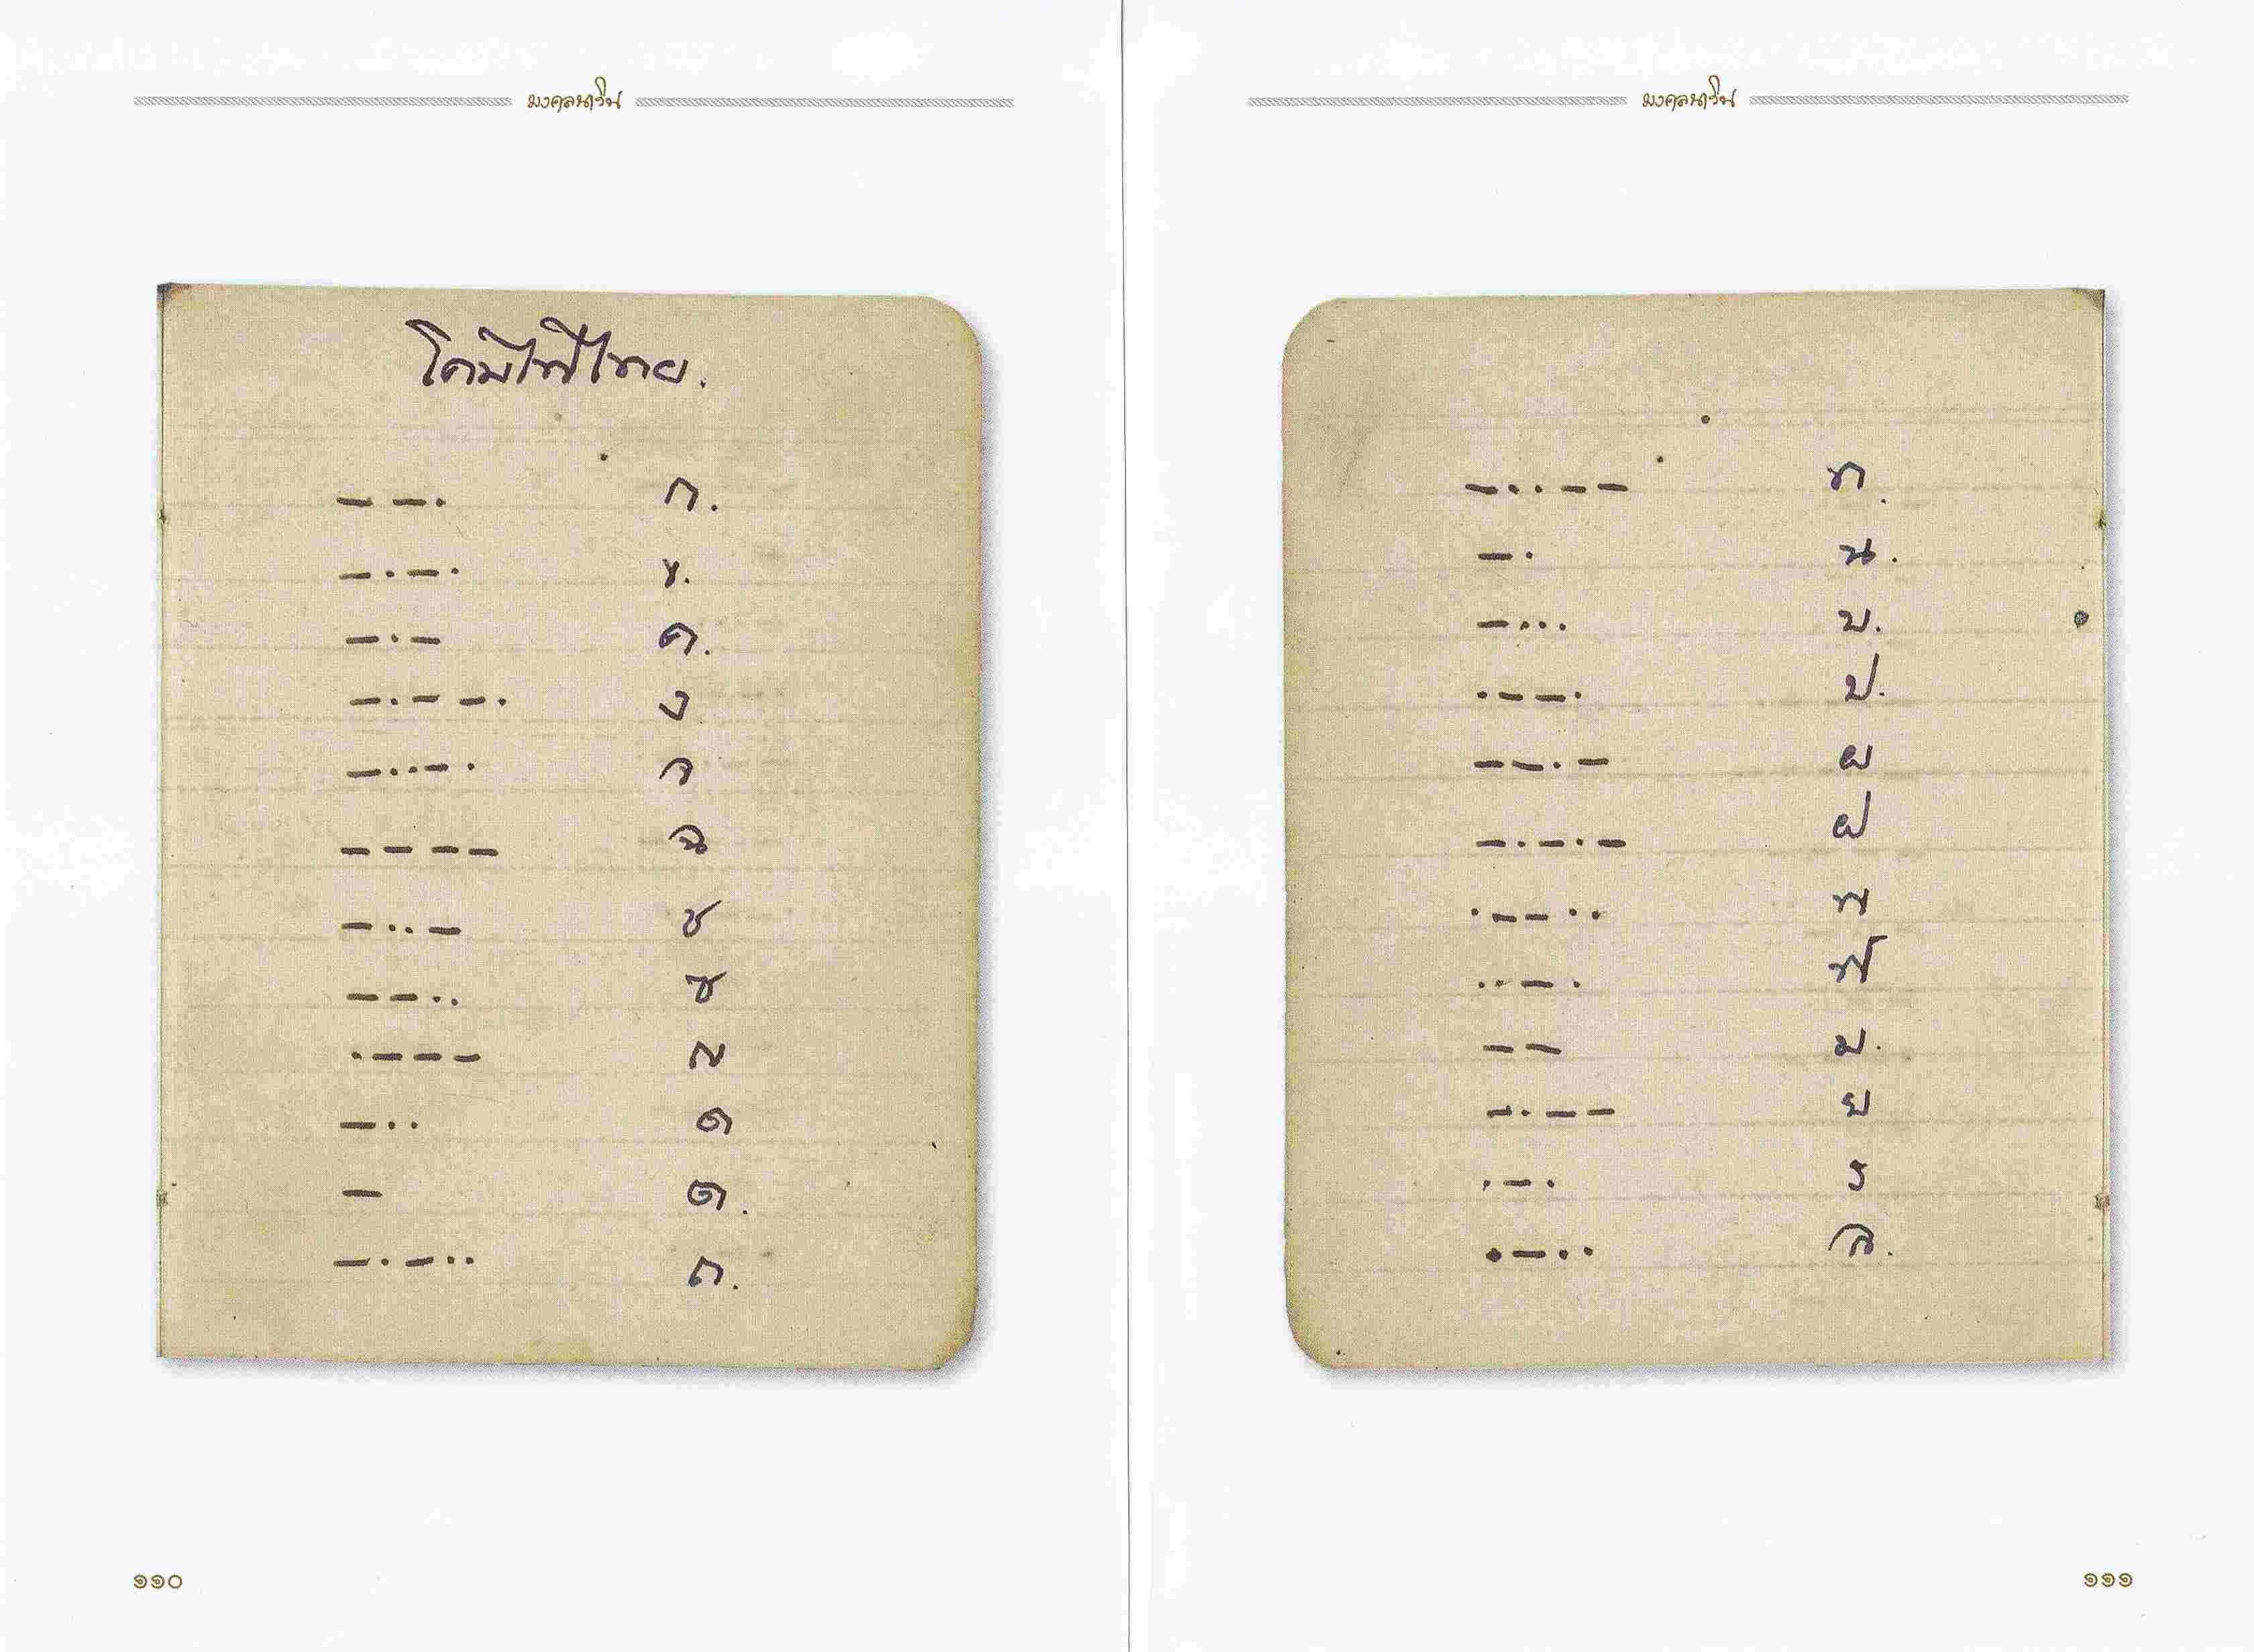 มงคลนาวิน
โคมไฟไทย.
— — · ก.
— · — · ข.
— · — ค.
— · — — · ง
— · · — · จ
— — — — ฉ
— · · — ช
— — · · ซ
· — — — ญ
— · · ด
— ต.
— · — · · ถ.
๑๑๐
มงคลนาวิน
— · · — — ท.
— · น.
— · · · บ.
· — — · ป.
— — · — ผ
— · — · — ฝ
· — — · · พ
· · — · ฟ
— — ม.
— · — — ย
· — · ร
· — · · ล.
๑๑๑